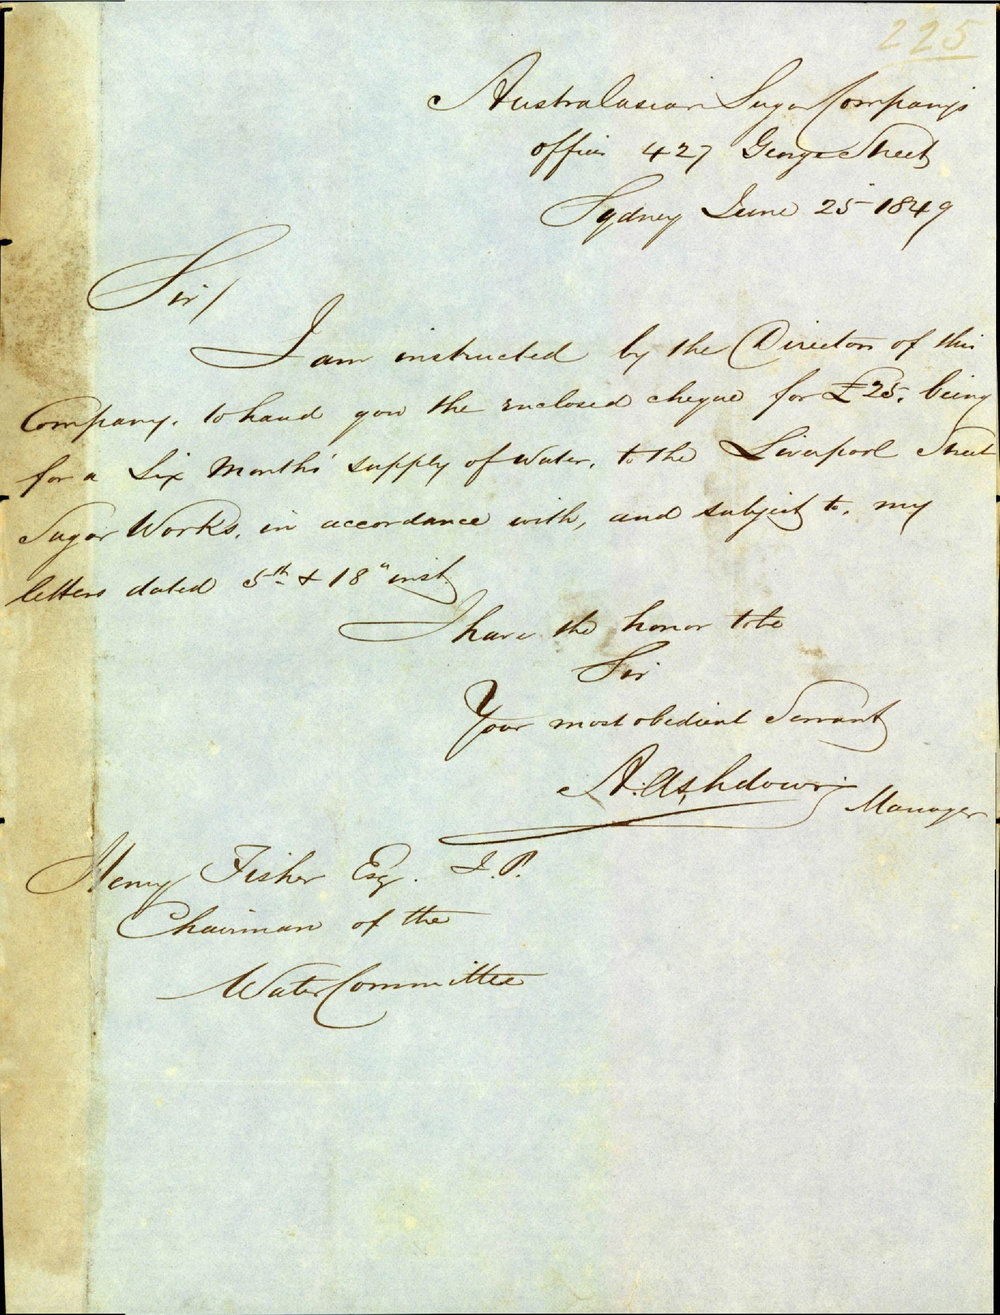 225
Australasian Sugar Company's
office 427 George Street
Sydney June 25 1849
Sir/
I am instructed by the Directors of this
Company, to hand you the enclosed cheque for £25. being
for a Six Months' supply of Water, to the Liverpool Street
Sugar Works, in accordance with, and subject to, my
letters dated 5th & 18" inst.
I have the honor to be
Sir
Your most obedient Servant
A. Ashdown Manager
Henry Fisher Esq. J.P.
Chairman of the
Water Committee